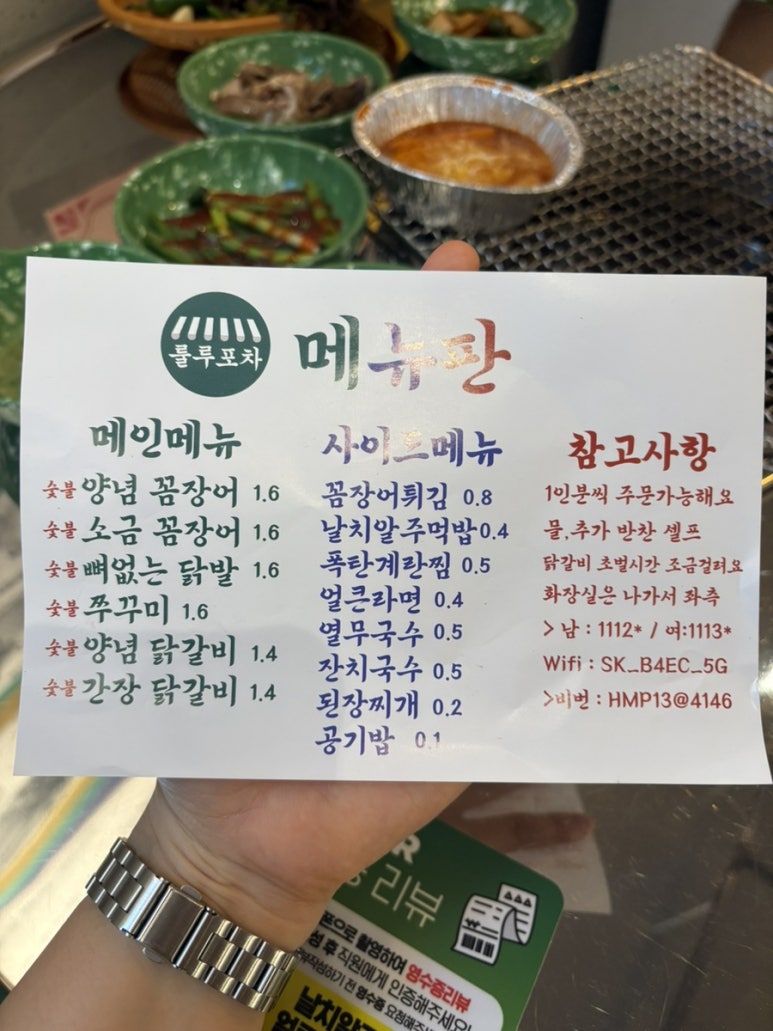 룰루포차
메뉴판
메인메뉴
숯불 양념 꼼장어 1.6
숯불 소금 꼼장어 1.6
숯불 뼈없는 닭발 1.6
숯불 쭈꾸미 1.6
숯불 양념 닭갈비 1.4
숯불 간장 닭갈비 1.4
사이드메뉴
꼼장어튀김 0.8
날치알주먹밥 0.4
폭탄계란찜 0.5
얼큰라면 0.4
열무국수 0.5
잔치국수 0.5
된장찌개 0.2
공기밥 0.1
참고사항
1인분씩 주문가능해요
물.추가 반찬 셀프
닭갈비 초벌시간 조금걸려요
화장실은 나가서 좌측
> 남 : 1112* / 여:1113*
Wifi : SK_B4EC_5G
>비번 : HMP13@4146
리뷰
촬영하여 영수증리뷰
후 직원에게 인증해주세요!
작성하기 전 영수증 요청해주세요
날치알